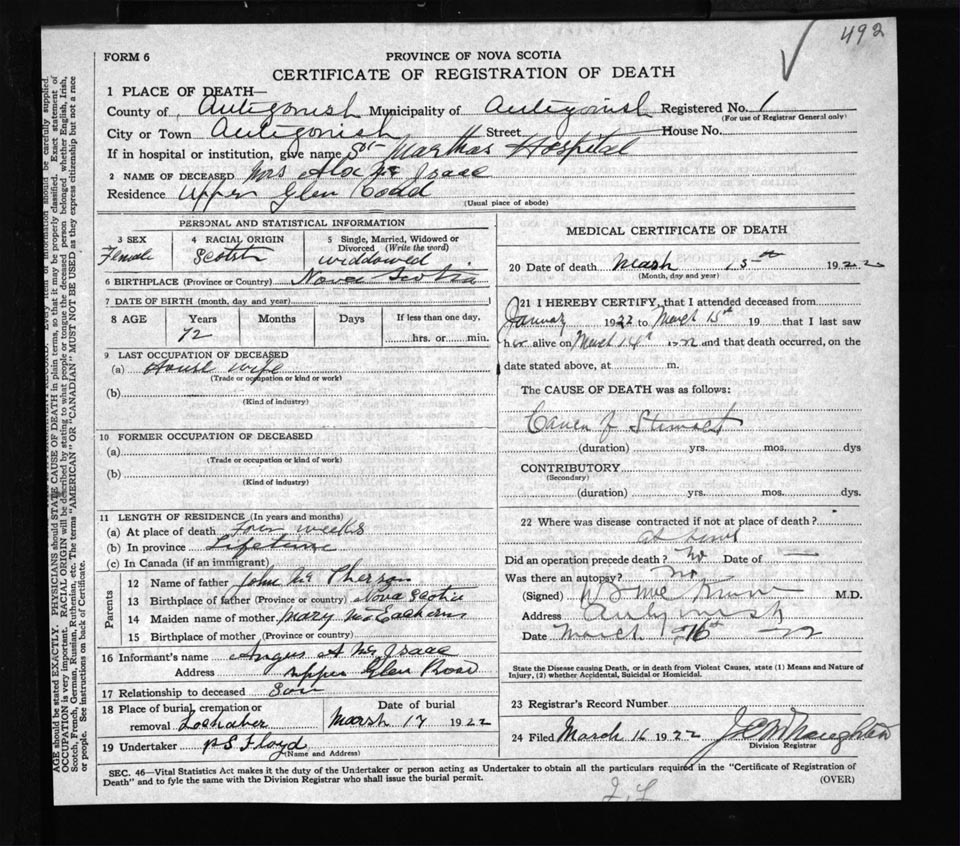 492
FORM 6
PROVINCE OF NOVA SCOTIA
CERTIFICATE OF REGISTRATION OF DEATH
1 PLACE OF DEATH—
County of Antigonish Municipality of Antigonish Registered No. 1
(For use of Registrar General only)
City or Town Antigonish Street House No.
If in hospital or institution, give name St Marthas Hospital
2 NAME OF DECEASED Mrs Alex Mc Isaac
Residence Upper Glen Road
(Usual place of abode)
PERSONAL AND STATISTICAL INFORMATION
3 SEX
Female
4 RACIAL ORIGIN
Scotch
5 Single, Married, Widowed or
Divorced (Write the word)
widdowed
6 BIRTHPLACE (Province or Country) Nova Scotia
7 DATE OF BIRTH (month, day and year)
8 AGE Years Months Days If less than one day,
72 hrs. or min.
9 LAST OCCUPATION OF DECEASED
(a) House Wife
(Trade or occupation or kind or work)
(b)
(Kind of industry)
10 FORMER OCCUPATION OF DECEASED
(a)
(Trade or occupation or kind or work)
(b)
(Kind of industry)
11 LENGTH OF RESIDENCE (In years and months)
(a) At place of death Four weeks
(b) In province Lifetime
(c) In Canada (if an immigrant)
Parents
12 Name of father John Mc Pherson
13 Birthplace of father (Province or country) Nova Scotia
14 Maiden name of mother Mary McEachern
15 Birthplace of mother (Province or country)
16 Informant's name Angus A Mc Isaac
Address Upper Glen Road
17 Relationship to deceased Son
18 Place of burial, cremation or
removal Lochaber
Date of burial
March 17 1922
19 Undertaker P S Floyd
(Name and Address)
MEDICAL CERTIFICATE OF DEATH
20 Date of death March 15th 1922
(Month, day and year)
21 I HEREBY CERTIFY, that I attended deceased from
January 1922 to March 15th 19 that I last saw
her alive on March 14th 1922 and that death occurred, on the
date stated above, at m.
The CAUSE OF DEATH was as follows:
Cancer of Stomach
(duration) yrs. mos. dys
CONTRIBUTORY
(Secondary)
(duration) yrs. mos. dys.
22 Where was disease contracted if not at place of death?
at home
Did an operation precede death? No Date of —
Was there an autopsy? No
(Signed) M.D.
Address Antigonish
Date March 16th 22
State the Disease causing Death, or in death from Violent Causes, state (1) Means and Nature of
Injury, (2) whether Accidental, Suicidal or Homicidal.
23 Registrar's Record Number
24 Filed March 16 1922 J C McNaughton
Division Registrar
SEC. 46—Vital Statistics Act makes it the duty of the Undertaker or person acting as Undertaker to obtain all the particulars required in the "Certificate of Registration of
Death" and to fyle the same with the Division Registrar who shall issue the burial permit. (OVER)
AGE should be stated EXACTLY. PHYSICIANS should STATE CAUSE OF DEATH in plain terms, so that it may be properly classified. Exact statement of
OCCUPATION is very important. RACIAL ORIGIN will be described by stating to what people or tongue the deceased person belonged whether English, Irish,
Scotch, French, German, Russian, Ruthenian, etc. The terms "AMERICAN" OR "CANADIAN" MUST NOT BE USED as they express citizenship but not a race
or people. See instructions on back of Certificate.